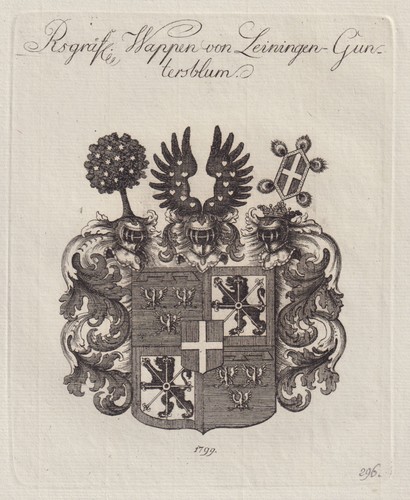 Rsgräfl. Wappen von Leiningen-Gun-
tersblum.
1799.
296.